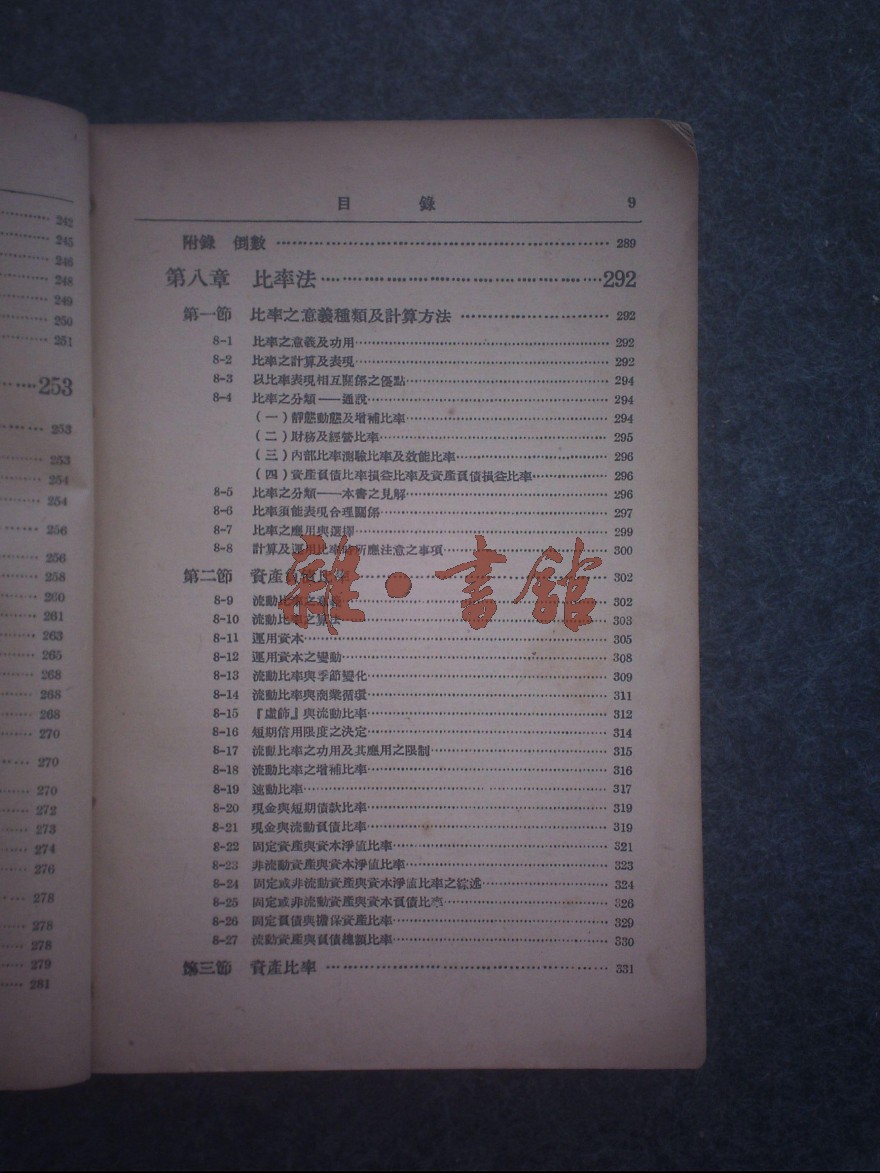 242
245
246
248
249
250
251
253
253
253
254
254
256
256
258
260
261
263
265
268
268
268
270
270
270
272
273
274
276
278
278
278
279
281
目錄 9
附錄 倒數 289
第八章 比率法 292
第一節 比率之意義種類及計算方法 292
8-1 比率之意義及功用 292
8-2 比率之計算及表現 292
8-3 以比率表現相互關係之優點 294
8-4 比率之分類——通說 294
(一)靜態動態及增補比率 294
(二)財務及經營比率 295
(三)內部比率測驗比率及效能比率 296
(四)資產負債比率損益比率及資產負債損益比率 296
8-5 比率之分類——本書之見解 296
8-6 比率須能表現合理關係 297
8-7 比率之應用與選擇 299
8-8 計算及運用比率時所應注意之事項 300
第二節 資產負債比率 302
8-9 流動比率之意義 302
8-10 流動比率之算法 303
8-11 運用資本 305
8-12 運用資本之變動 308
8-13 流動比率與季節變化 309
8-14 流動比率與商業循環 311
8-15 『虛飾』與流動比率 312
8-16 短期信用限度之決定 314
8-17 流動比率之功用及其應用之限制 315
8-18 流動比率之增補比率 316
8-19 速動比率 317
8-20 現金與短期債款比率 319
8-21 現金與流動負債比率 319
8-22 固定資產與資本淨值比率 321
8-23 非流動資產與資本淨值比率 323
8-24 固定或非流動資產與資本淨值比率之綜述 324
8-25 固定或非流動資產與資本負債比率 326
8-26 固定負債與擔保資產比率 329
8-27 流動資產與負債總額比率 330
第三節 資產比率 331
雜·書館